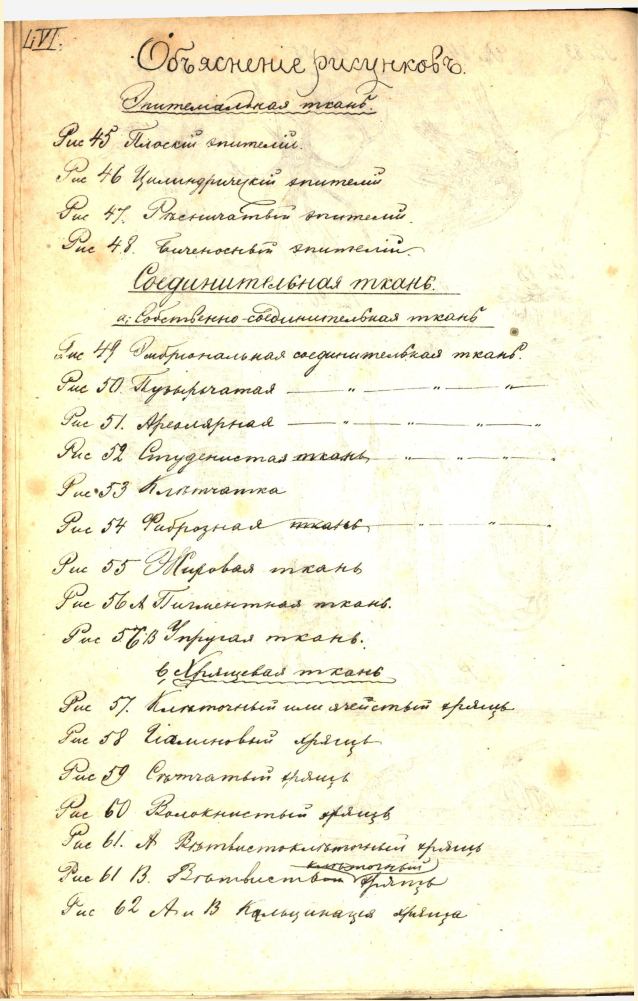 LVI.
Объясненіе рисунковъ.
Эпителіальная ткань.
Рис 45 Плоскій эпителій.
Рис 46 Цилиндрическій эпителій
Рис 47. Рѣсничатый эпителій.
Рис 48. Биченосный эпителій.
Соединительная ткань.
а, Собственно-соединительная ткань
Рис 49 Эмбріональная соединительная ткань.
Рис 50. Пузырьчатая — " — " — " —
Рис 51. Ареолярная — " — " — " — "
Рис 52 Студенистая ткань — " — " — "
Рис 53 Клѣтчатка
Рис 54 Фиброзная ткань — " — " — "
Рис 55 Жировая ткань
Рис 56 А Пигментная ткань.
Рис 56 В Упругая ткань.
в, Хрящевая ткань
Рис 57. Клѣточный или ячеистый хрящъ
Рис 58 Гіалиновый хрящъ
Рис 59 Сѣтчатый хрящъ
Рис 60 Волокнистый хрящъ
Рис 61. А Вѣтвистоклѣточный хрящъ
клѣточный
Рис 61 В. Вѣтвистый хрящъ
Рис 62 А и В Кальцинація хряща